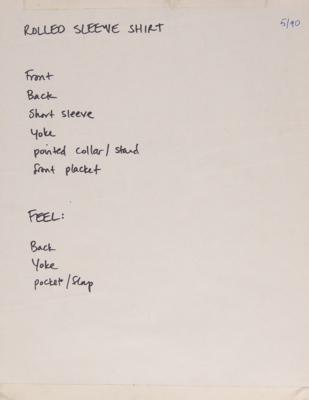 ROLLED SLEEVE SHIRT 5/90
Front
Back
Short sleeve
Yoke
pointed collar/stand
front placket
FEEL:
Back
Yoke
pocket/flap